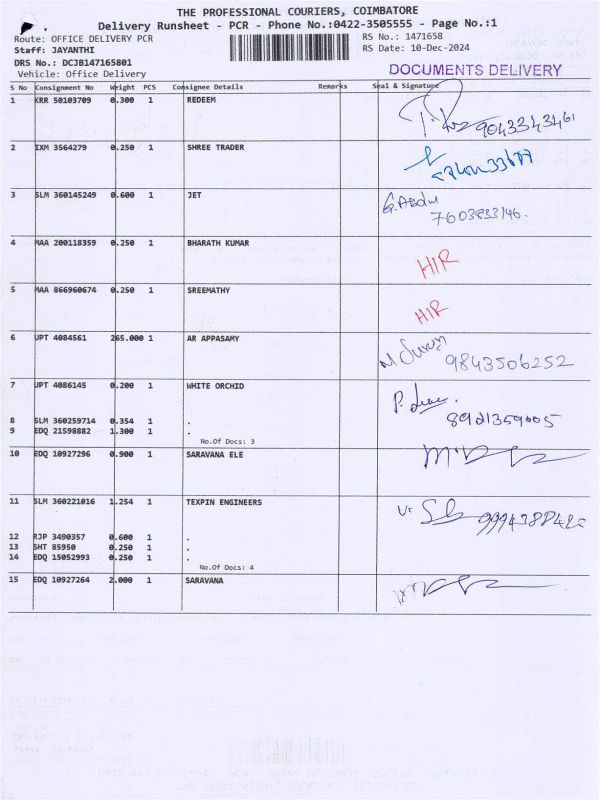 THE PROFESSIONAL COURIERS, COIMBATORE
Delivery Runsheet - PCR - Phone No.:0422-3505555 - Page No.:1
Route: OFFICE DELIVERY PCR
RS No.: 1471658
Staff: JAYANTHI
RS Date: 10-Dec-2024
DRS No.: DCJB147165801
Vehicle: Office Delivery
DOCUMENTS DELIVERY
S No Consignment No Weight PCS Consignee Details Remarks Seal & Signature
1 KRR 50103709 0.300 1 REDEEM
9043343461
2 IXM 3564279 0.250 1 SHREE TRADER
3 SLM 360145249 0.600 1 JET
G. Abdu
7603833146.
4 MAA 200118359 0.250 1 BHARATH KUMAR
HIR
5 MAA 866960674 0.250 1 SREEMATHY
HIR
6 JPT 4084561 265.000 1 AR APPASAMY
9843506252
7 JPT 4086145 0.200 1 WHITE ORCHID
8921359005
8 SLM 360259714 0.354 1 .
9 EDQ 21598882 1.300 1 .
No.Of Docs: 3
10 EDQ 10927296 0.900 1 SARAVANA ELE
11 SLM 360221016 1.254 1 TEXPIN ENGINEERS
12 RJP 3490357 0.600 1 .
13 SHT 85950 0.250 1 .
14 EDQ 15052993 0.250 1 .
No.Of Docs: 4
15 EDQ 10927264 2.000 1 SARAVANA